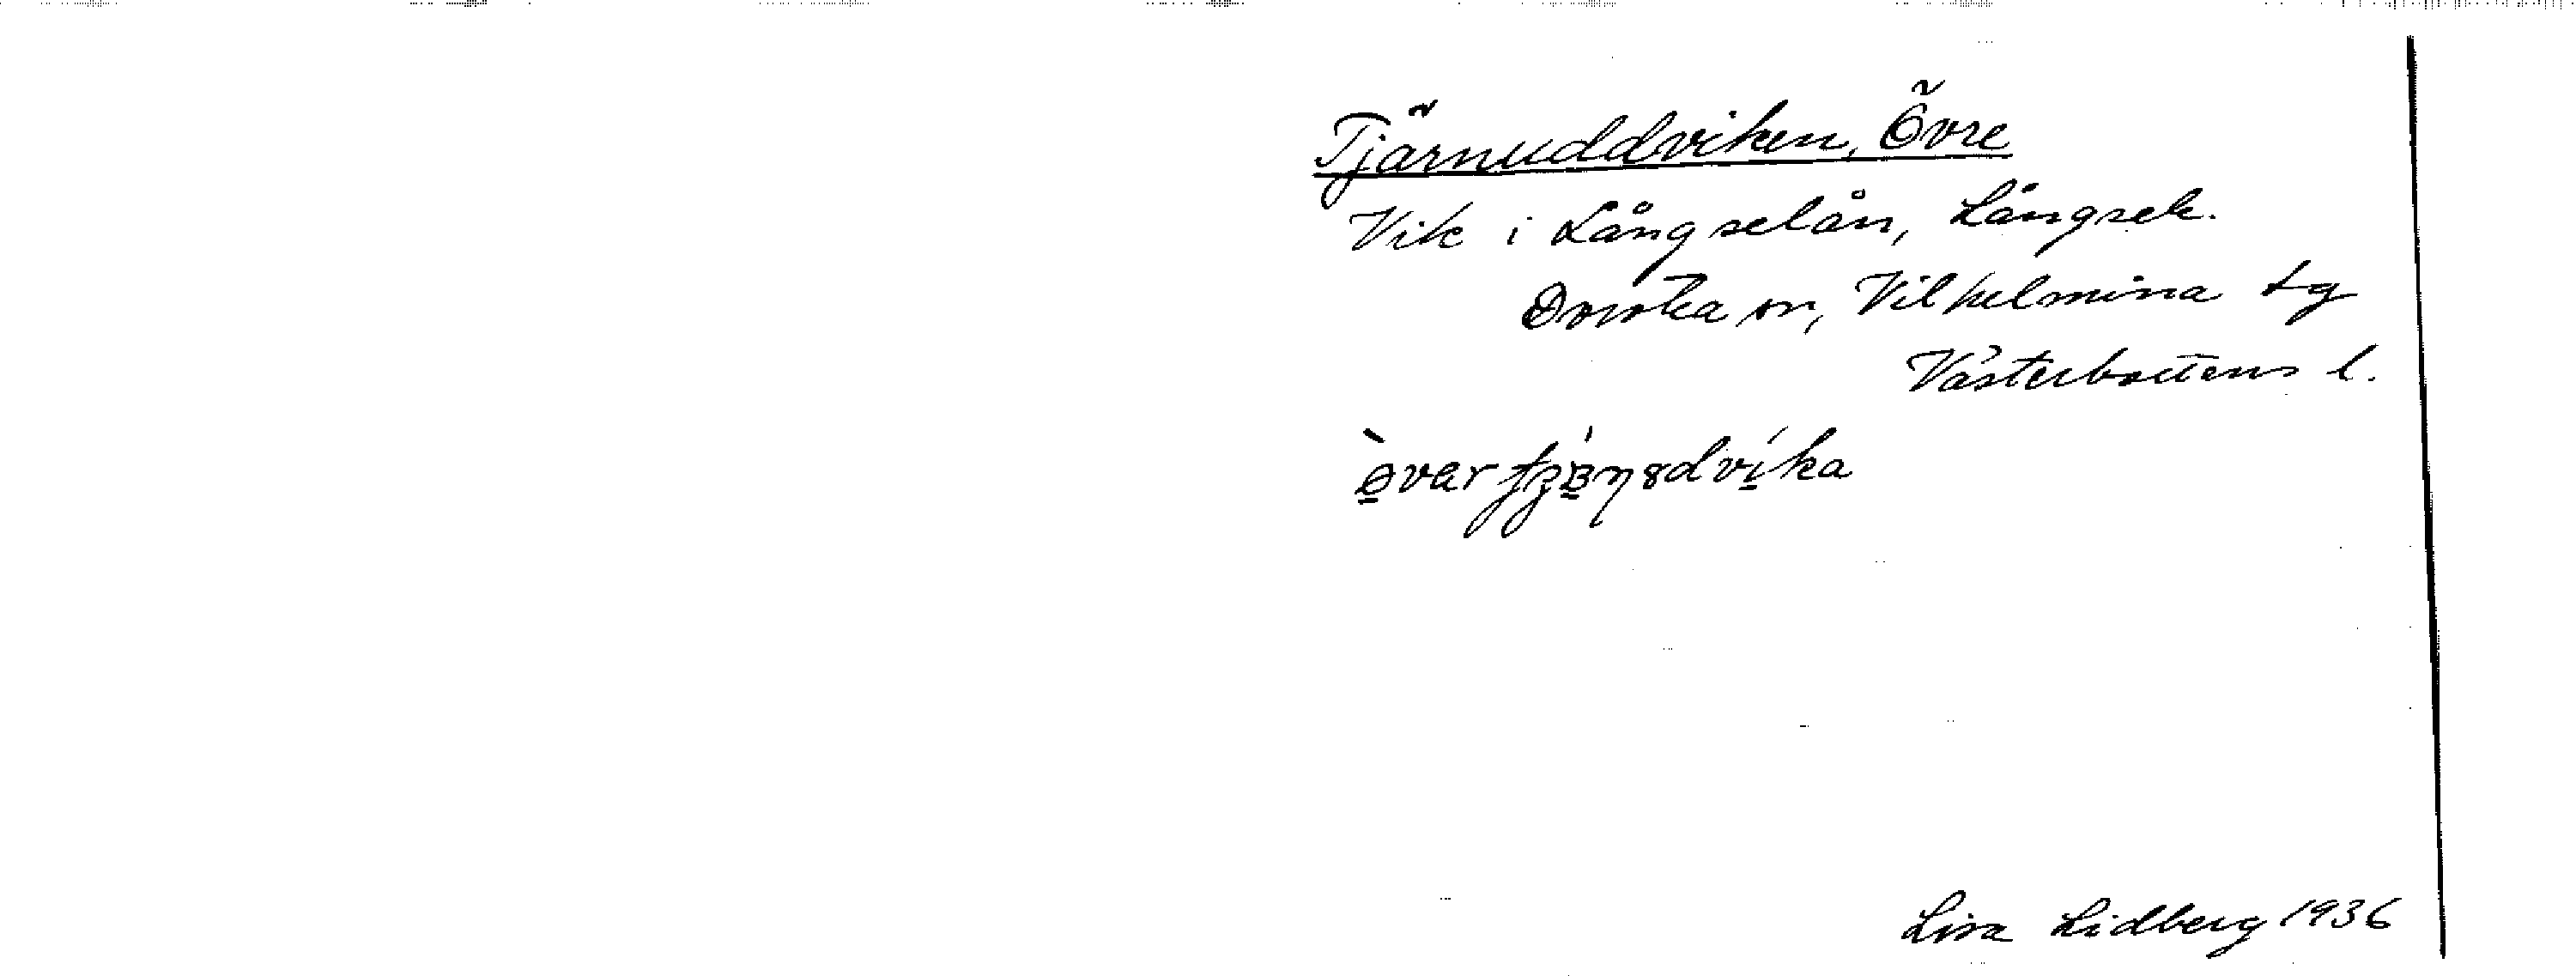 Tjärnuddviken, Övre
Vik i Långselån, Långsele.
Dorotea sn, Vilhelmina tg
Västerbottens l.
Lisa Lidberg 1936